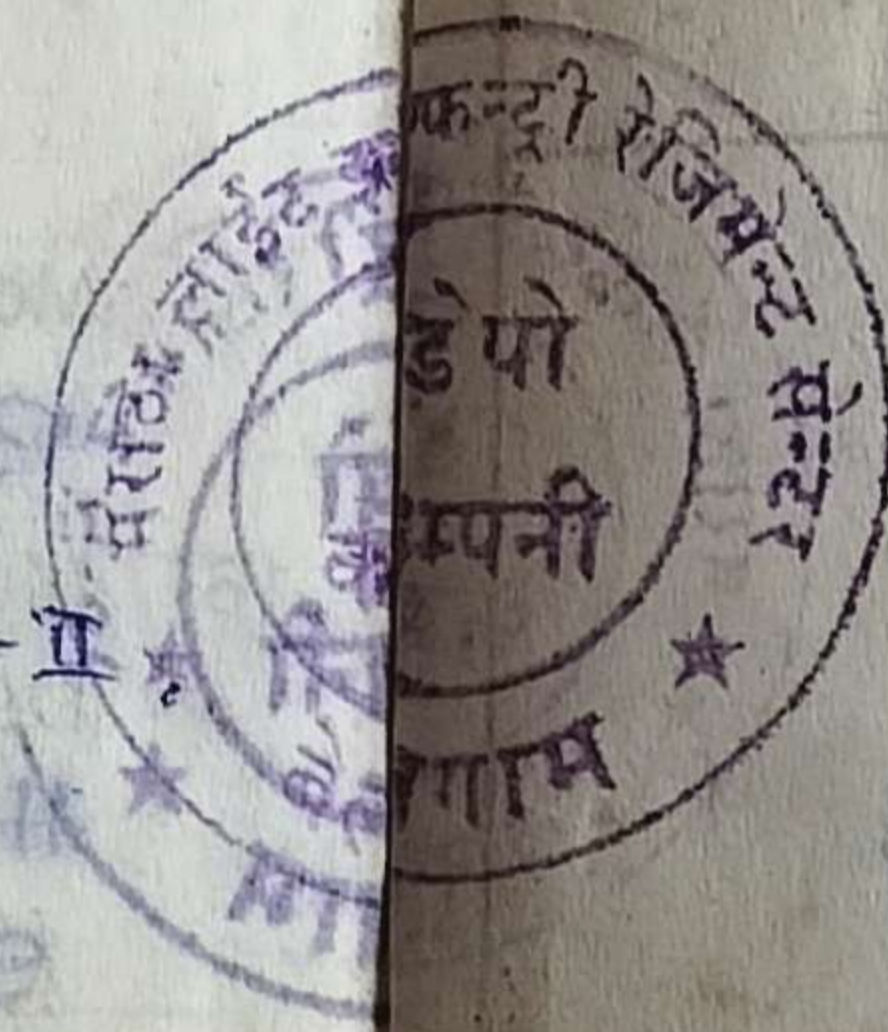 मराठा लाईट इन्फन्ट्री रेजिमेन्ट सेन्टर
डेपो
कम्पनी
बेलगाम
II